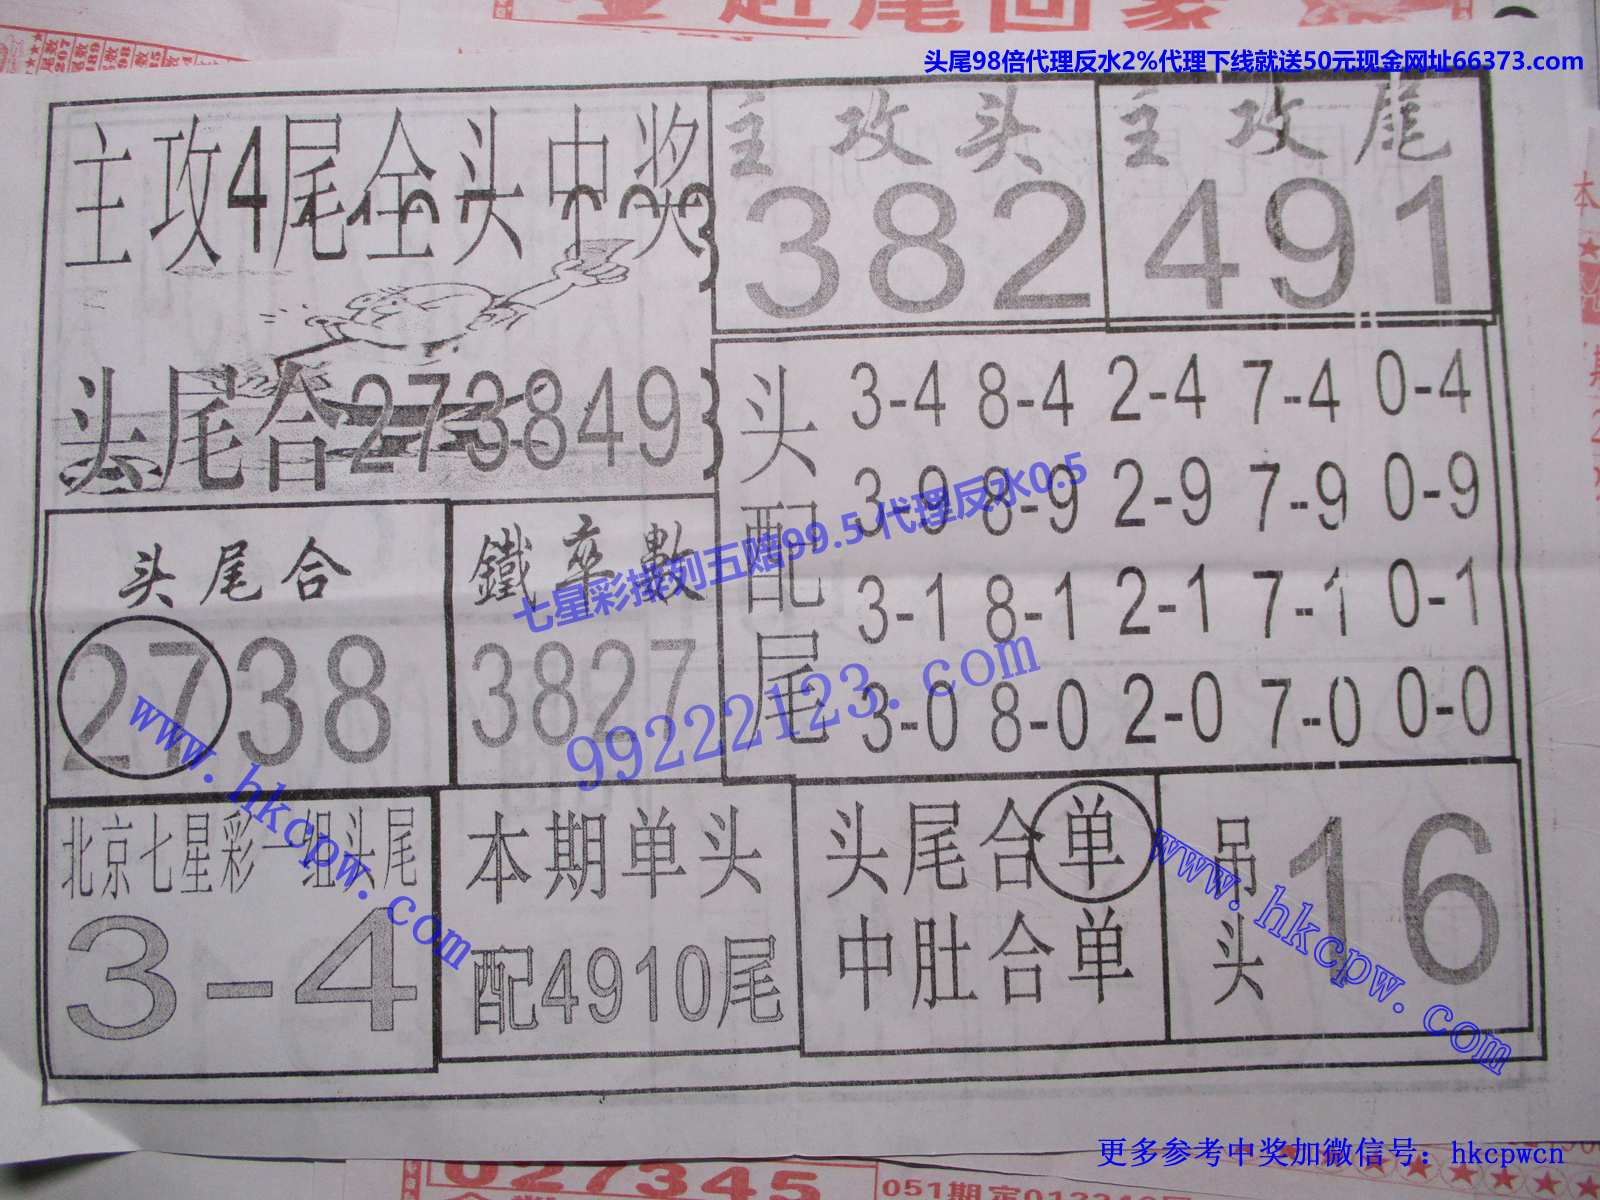 金赶尾回家
头尾98倍代理反水2%代理下线就送50元现金网址66373.com
主攻4尾全头中奖
主攻头
382
主攻尾
491
头尾合273849
头配尾
3-4 8-4 2-4 7-4 0-4
3-9 8-9 2-9 7-9 0-9
3-1 8-1 2-1 7-1 0-1
3-0 8-0 2-0 7-0 0-0
头尾合
2738
鐵率數
3827
七星彩排列五赔99.5 代理反水0.5
99222123.com
www.hkcpw.com
北京七星彩一组头尾
3-4
本期单头
配4910尾
头尾合单
中肚合单
吊头
16
www.hkcpw.com
更多参考中奖加微信号：hkcpwcn
027345